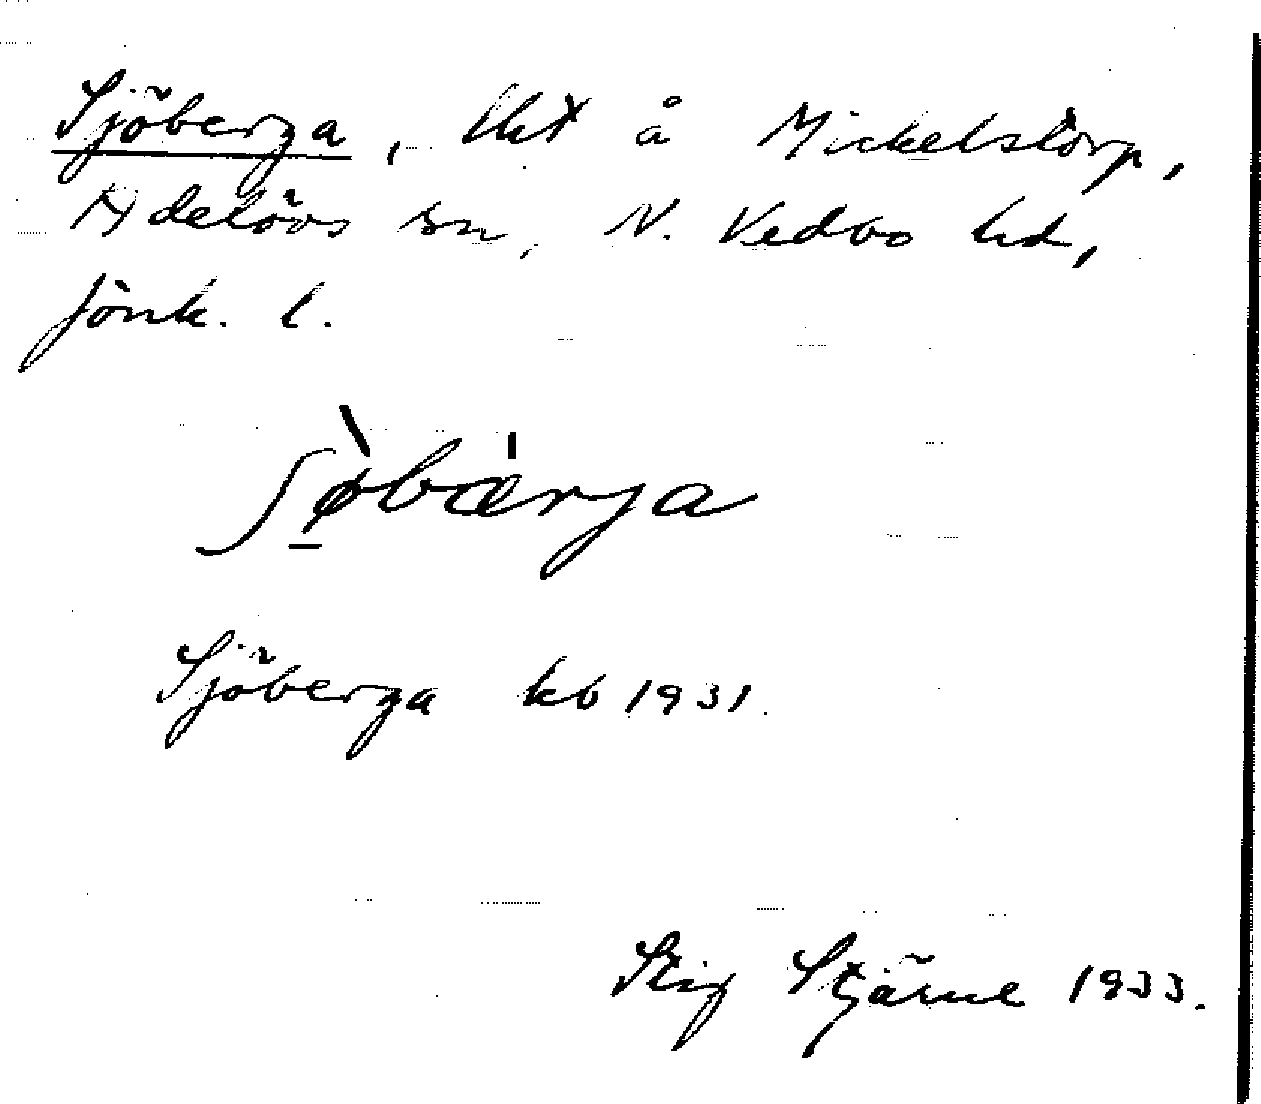 Sjöberga, lht å Mickelstorp,
Adelövs sn, N. Vedbo hd,
Jönk. l.
ʃø̠̀bæ̍rja
Sjöberga kb 1931.
Stig Stjärne 1933.